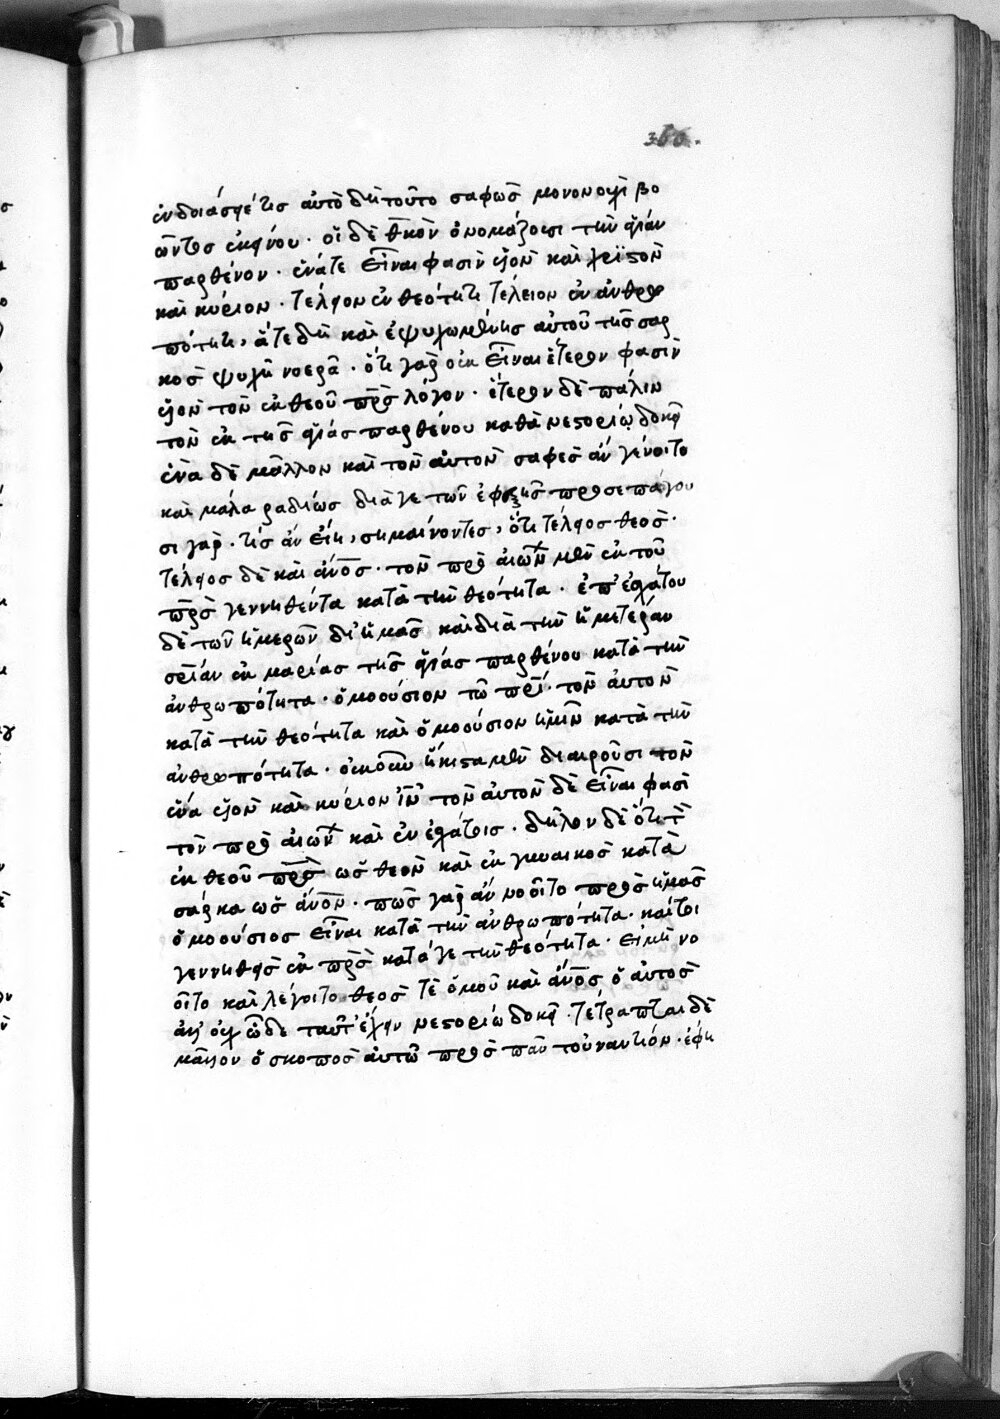 366.
ἐνδοιάσειέ τις αὐτὸ δὴ τοῦτο σαφῶς μονονουχὶ βο
ῶντος ἐκείνου· οἱ δὲ θκὸν ὀνομάζουσι τὴν ἁγίαν
παρθένον· ἕνα τε εἶναι φασὶν υἱὸν καὶ χριστὸν
καὶ κύριον· τέλειον ἐν θεότητι τέλειον ἐν ἀνθρω
πότητι, ἅτε δὴ καὶ ἐψυχωμένης αὐτοῦ τῆς σαρ
κὸς ψυχῇ νοερᾷ· ὅτι γὰρ οὐκ εἶναι ἕτερον φασὶν
υἱὸν τὸν ἐκ θεοῦ πρς λόγον· ἕτερον δὲ πάλιν
τὸν ἐκ τῆς ἁγίας παρθένου καθὰ νεστορίῳ δοκεῖ
ἕνα δὲ μᾶλλον καὶ τὸν αὐτὸν σαφὲς ἂν γένοιτο
καὶ μάλα ραδίως διά γε τῶν ἐφεξῆς προσεπάγου
σι γὰρ· τίς ἂν εἴη, σημαίνοντες, ὅτι τέλειος θεὸς·
τέλειος δὲ καὶ ἄνος· τὸν πρὸ αἰώνων μὲν ἐκ τοῦ
πρς γεννηθέντα κατὰ τὴν θεότητα· ἐπ' ἐσχάτου
δὲ τῶν ἡμερῶν δι' ἡμᾶς καὶ διὰ τὴν ἡμετέραν
σρίαν ἐκ μαρίας τῆς ἁγίας παρθένου κατὰ τὴν
ἀνθρωπότητα· ὁμοούσιον τῷ πρί· τὸν αὐτὸν
κατὰ τὴν θεότητα καὶ ὁμοούσιον ἡμῖν κατὰ τὴν
ἀνθρωπότητα· οὐκοῦν ἥκιστα μὲν διαιροῦσι τὸν
ἕνα υἱὸν καὶ κύριον ἰν τὸν αὐτὸν δὲ εἶναι φασὶ
τὸν πρὸ αἰώνων καὶ ἐν ἐσχάτοις· δῆλον δὲ ὅτι τὸν
ἐκ θεοῦ πρς ὡς θεὸν καὶ ἐκ γυναικὸς κατὰ
σάρκα ὡς ἄνον· πῶς γὰρ ἂν νοοῖτο πρὸς ἡμᾶς
ὁμοούσιος εἶναι κατὰ τὴν ἀνθρωπότητα· καίτοι
γεννηθεὶς ἐκ πρς κατά γε τὴν θεότητα· εἰ μὴ νο
οῖτο καὶ λέγοιτο θεός τε ὁμοῦ καὶ ἄνος ὁ αὐτὸς
ἀλλ' οὐχ ὧδε ταῦτ' ἔχειν νεστορίῳ δοκεῖ· τέτραπται δὲ
μᾶλλον ὁ σκοπὸς αὐτῷ πρὸς πᾶν τοὐναντίον· ἔφη